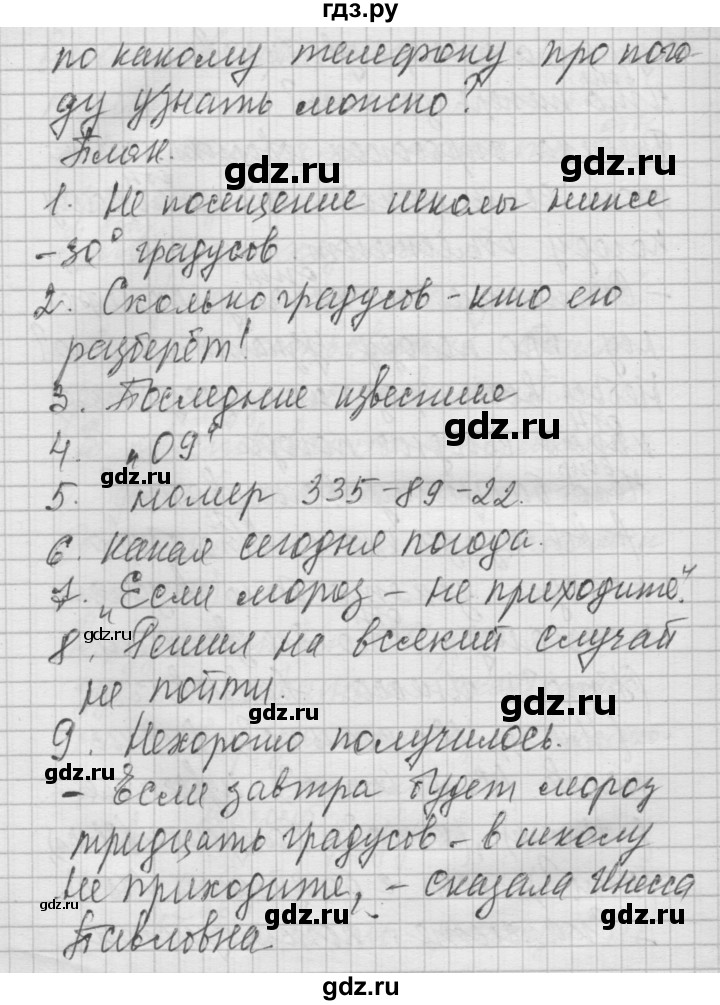 гдз.ру
по какому телефону про пого-
ду узнать можно?
План.
gdz.ru
gdz.ru
1. Не посещение школы ниже
-30° градусов
gdz.ru
gdz.ru
2. Сколько градусов - кто его
разберёт!
3. Последние известия
gdz.ru
4. „09“
gdz.ru
5. номер 335-89-22.
gdz.ru
6. Какая сегодня погода.
7. „Если мороз - не приходите“.
gdz.ru
8. Решил на всякий случай
не пойти.
gdz.ru
gdz.ru
9. Нехорошо получилось.
gdz.ru
- Если завтра будет мороз
тридцать градусов - в школу
не приходите, - сказала Инесса
gdz.ru
gdz.ru
Павловна
gdz.ru
gdz.ru